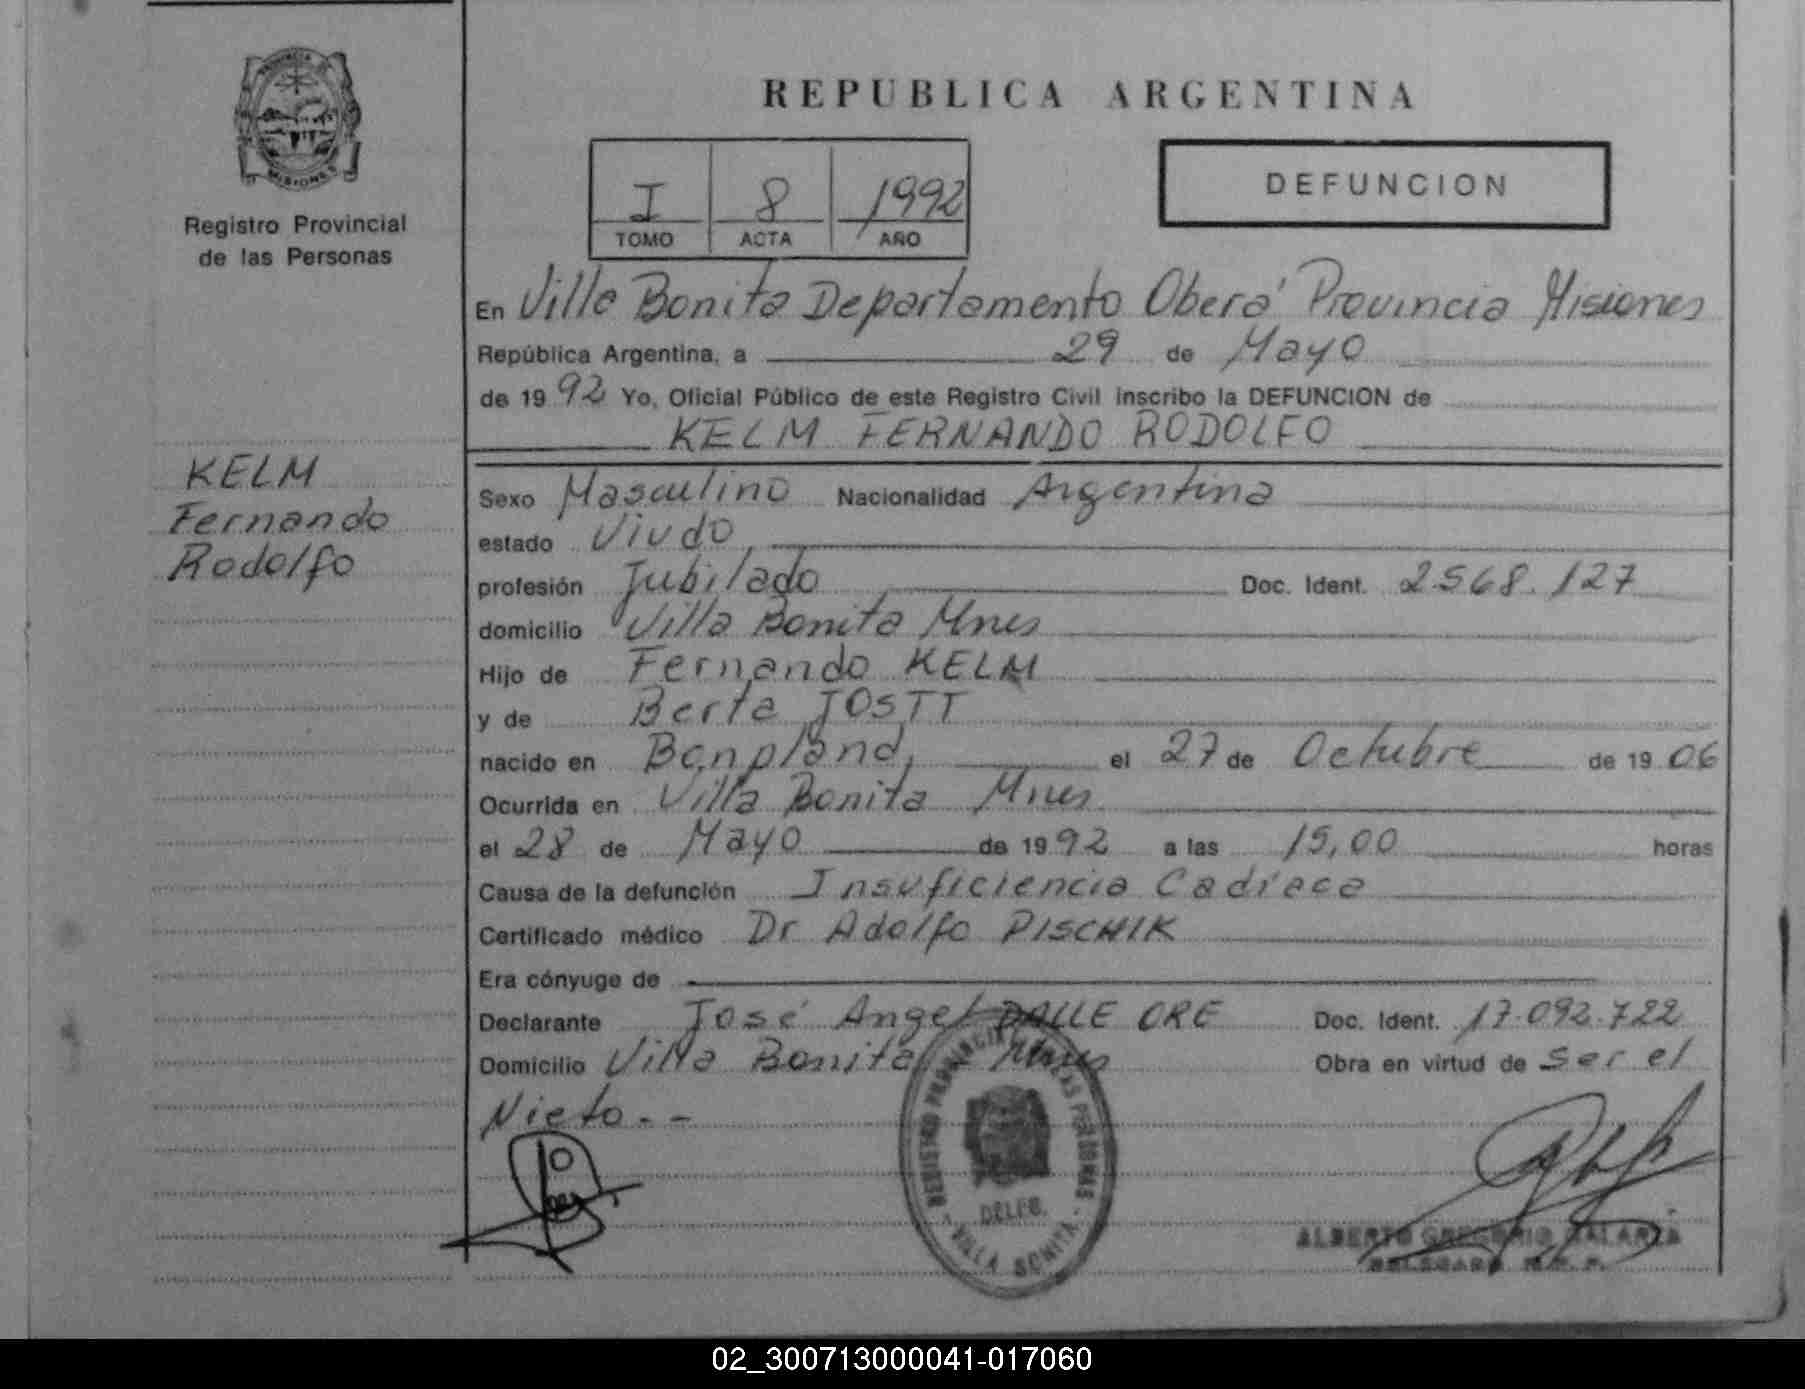 PROVINCIA DE
MISIONES
Registro Provincial
de las Personas
KELM
Fernando
Rodolfo
REPUBLICA ARGENTINA
I 8 1992
TOMO ACTA AÑO
DEFUNCION
En Villa Bonita Departamento Oberá Provincia Misiones
República Argentina, a 29 de Mayo
de 1992 Yo, Oficial Público de este Registro Civil inscribo la DEFUNCION de
KELM FERNANDO RODOLFO
Sexo Masculino Nacionalidad Argentina
estado Viudo
profesión Jubilado Doc. Ident. 2.568.127
domicilio Villa Bonita Mnes
Hijo de Fernando KELM
y de Berta JOSTT
nacido en Bonpland, el 27 de Octubre de 1906
Ocurrida en Villa Bonita Mnes
el 28 de Mayo de 1992 a las 15,00 horas
Causa de la defunción Insuficiencia Cadíaca
Certificado médico Dr Adolfo PISCHIK
Era cónyuge de
Declarante José Angel DALLE ORE Doc. Ident. 17.092.722
Domicilio Villa Bonita Mnes Obra en virtud de ser el
Nieto.--
REGISTRO PROVINCIAL DE LAS PERSONAS
DELEG.
- VILLA BONITA -
ALBERTO GREGORIO
02_300713000041-017060